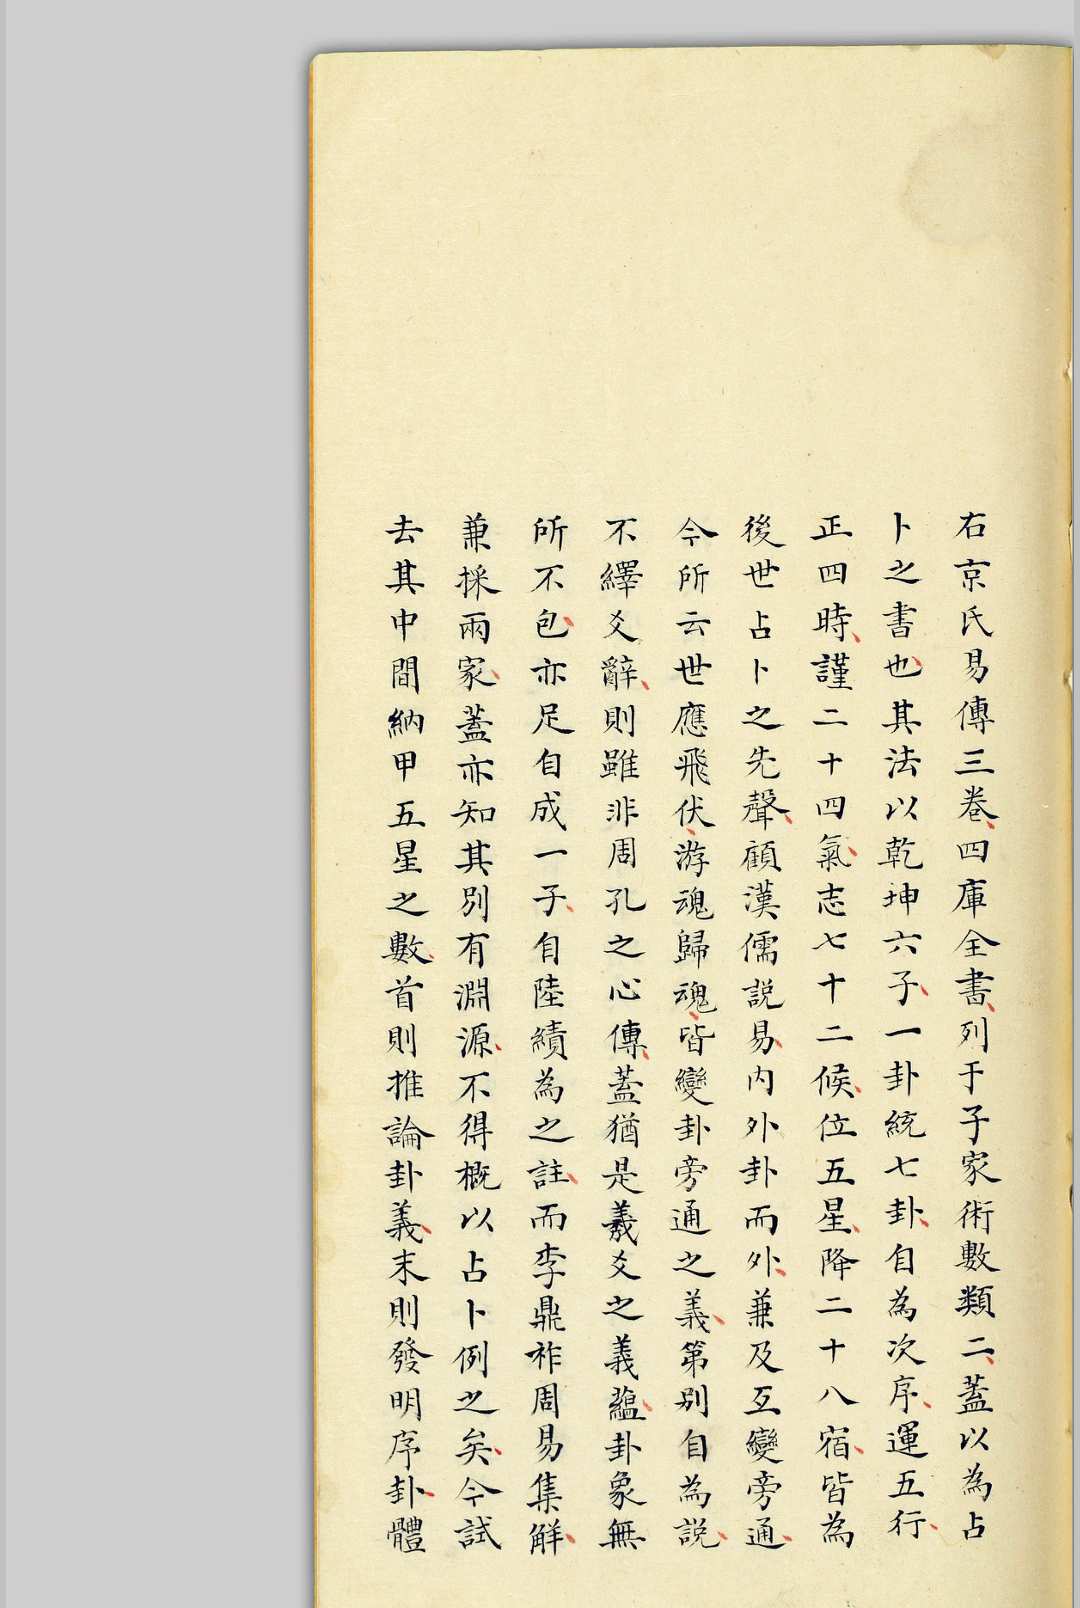 右京氏易傳三卷、四庫全書、列于子家術數類二、蓋以為占
卜之書也、其法以乾坤六子、一卦統七卦、自為次序、運五行、
正四時、謹二十四氣、志七十二候、位五星、降二十八宿、皆為
後世占卜之先聲、顧漢儒説易、内外卦而外、兼及互變旁通、
今所云世應飛伏、游魂歸魂、皆變卦旁通之義、第别自為説、
不繹爻辭、則雖非周孔之心傳、蓋猶是羲爻之義藴、卦象無
所不包、亦足自成一子、自陸績為之註、而李鼎祚周易集解、
兼採兩家、蓋亦知其别有淵源、不得概以占卜例之矣、今試
去其中間納甲五星之數、首則推論卦義、末則發明序卦、體